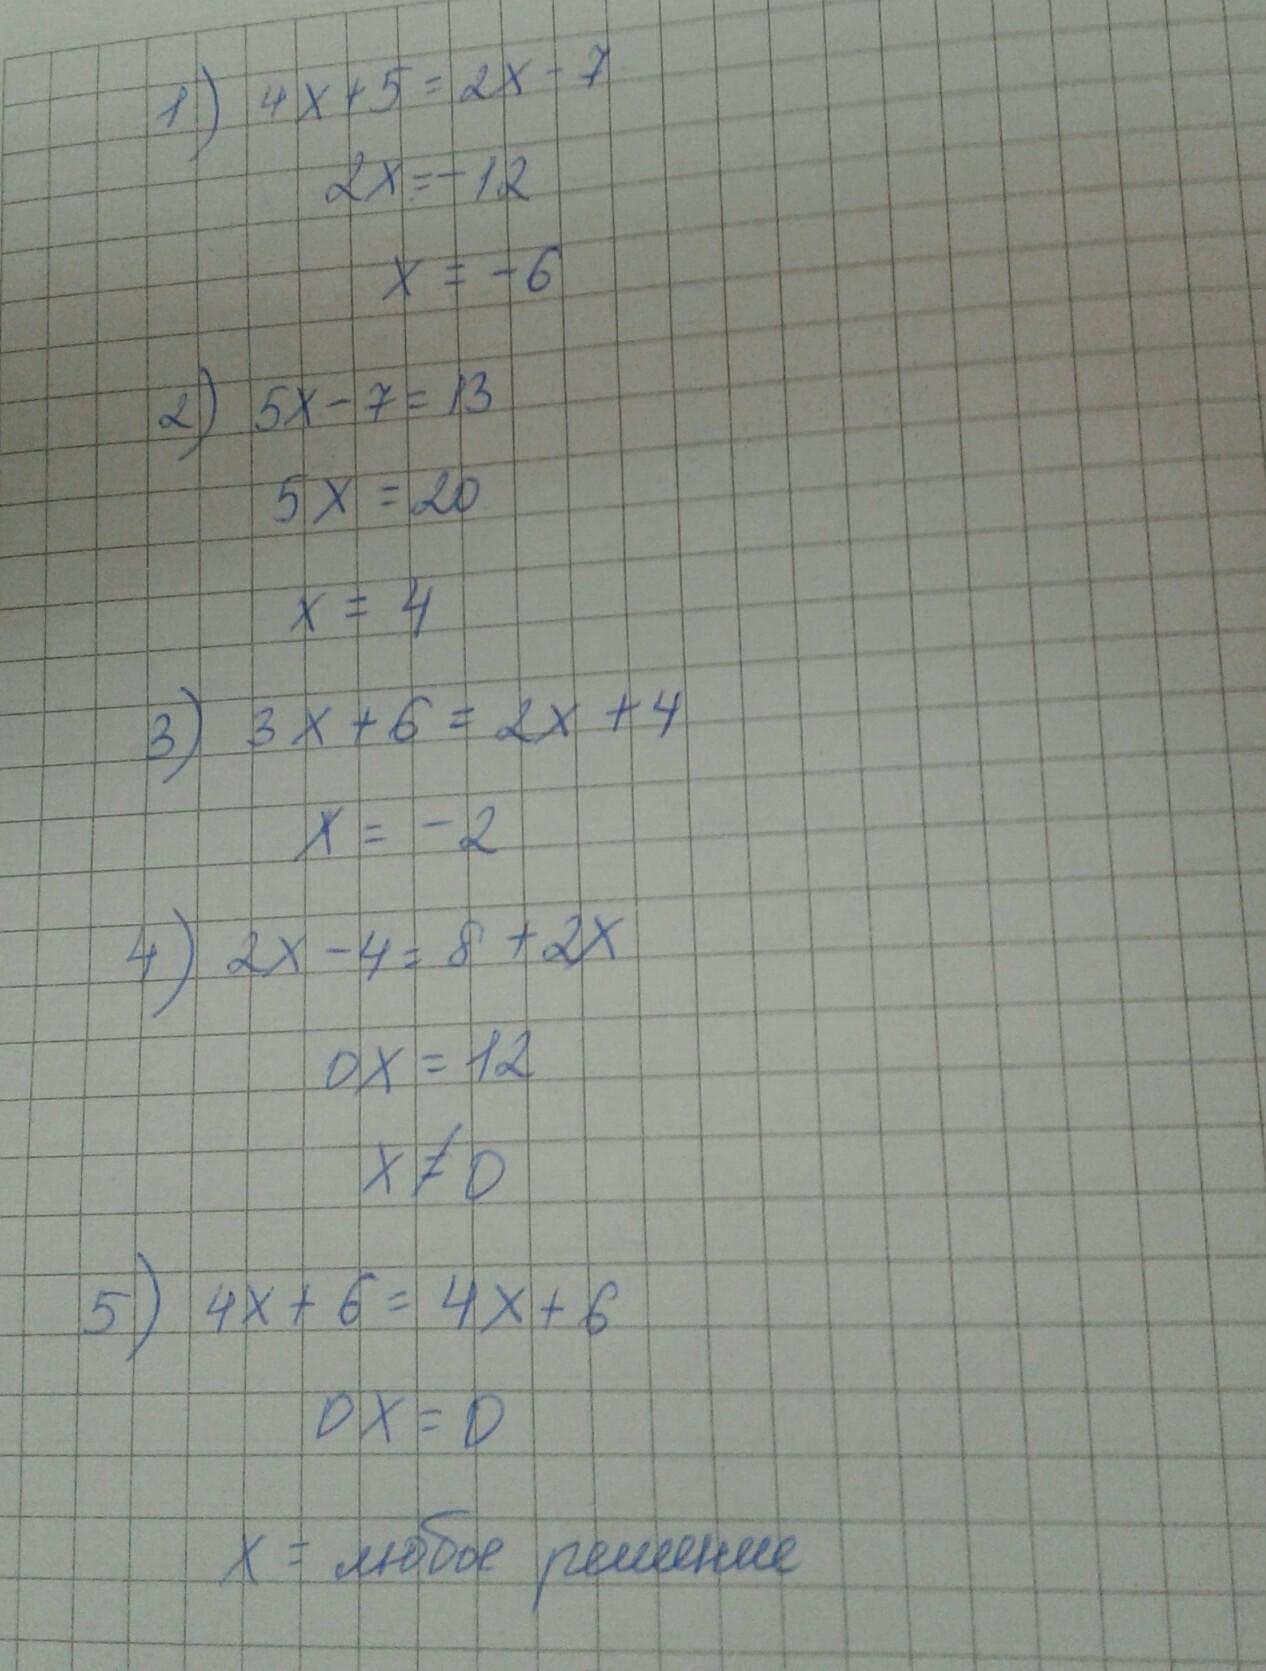 1) 4x+5=2x-7
2x=-12
x=-6
2) 5x-7=13
5x=20
x=4
3) 3x+6=2x+4
x=-2
4) 2x-4=8+2x
0x=12
x≠0
5) 4x+6=4x+6
0x=0
x= любое решение